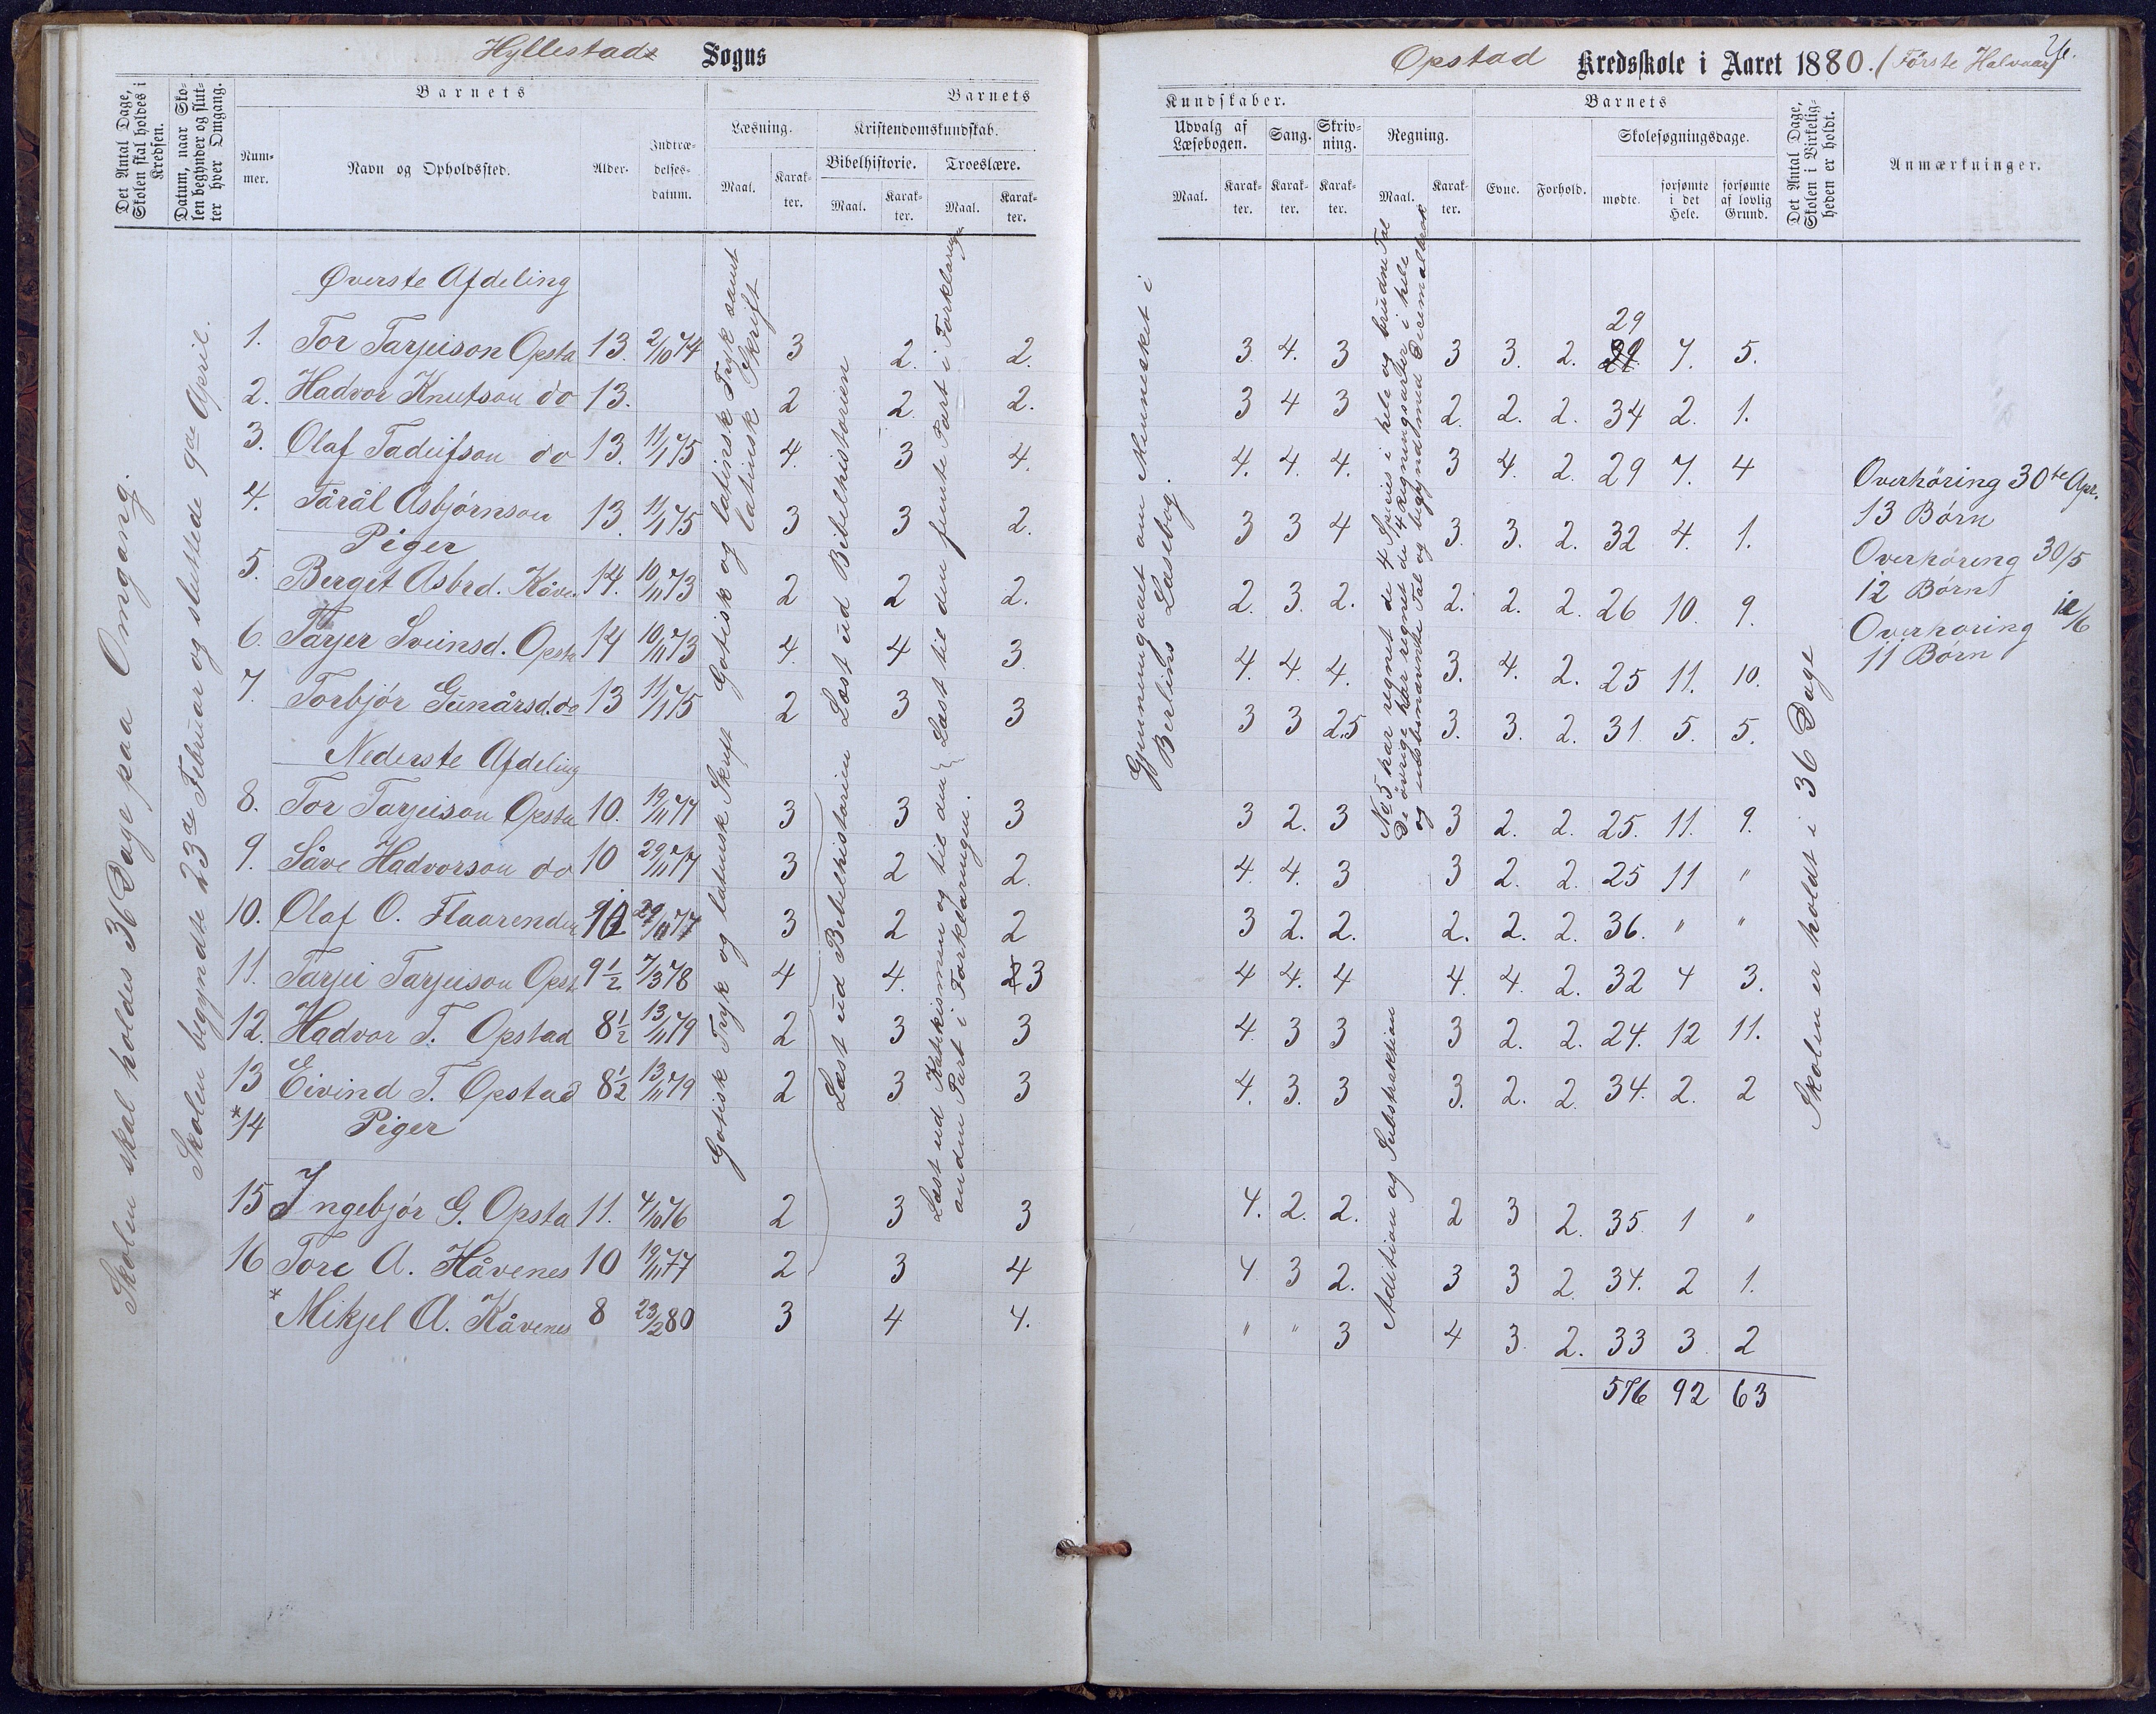 Hyllestads Sogns
Det Antal Dage, Skolen skal holdes i Kredsen.
Datum, naar Skolen begynder og slutter hver Omgang.
Barnets
Nummer.
Navn og Opholdssted.
Alder.
Indtrædelsesdatum.
Barnets
Læsning.
Maal.
Karakter.
Kristendomskundskab.
Bibelhistorie.
Maal.
Karakter.
Troeslære.
Maal.
Karakter.
Skolen skal holdes 36 Dage paa Omgang.
Skolen begyndte 23de Februar og sluttede 9de April.
Gotisk og latinsk Tryk samt latinsk Skrift
Læst ud Bibelhistorien
Læst til den femte Part i Forklaringen
Øverste Afdeling
1. Tor Tarjeison Opsta 13. 2/10 74 3 2. 2.
2. Hadvor Knutson do 13. 2 2 2.
3. Olaf Tadeifson do 13. 11/1 75 4. 3 4.
4. Tårål Asbjørnson 13 11/1 75 3 3 2.
Piger
5. Berget Asbrd. Kåve 14. 10/11 73 2 2 2.
6. Tarjer Sveinsd. Opsta 14 10/11 73 4. 4 3
7. Torbjør Gunårsd. do 13 11/1 75 2 3 3
Nederste Afdeling
Gotisk Tryk og latinsk Skrift
Læst ud Bibelhistorien
Læst ud Katekismen og til den anden Part i Forklaringen.
8. Tor Tarjeison Opsta 10. 19/11 77 3 3 3
9. Såve Hadvorson do 10 29/11 77 3 2 2.
10. Olaf O. Flaarenden 10 29/11 77 3 2 2
11. Tarjei Tarjeison Opst 9 1/2 7/3 78 4 4. 3
12. Hadvor T. Opstad 8 1/2 13/11 79 2 3 3
13 Eivind T. Opstad 8 1/2 13/11 79 2 3 3
*14 Piger
15 Ingebjør G. Opsta 11. 4/10 76 2 3 3
16 Tore A. Håvenes 10 19/11 77 2 3 4
* Mikjel A. Kåvenes 8 23/2 80 3 4 4.
Opstad Kredsskole i Aaret 1880. (Første Halvaar)
Kundskaber.
Udvalg af Læsebogen.
Maal.
Karakter.
Sang.
Karakter.
Skrivning.
Karakter.
Regning.
Maal.
Karakter.
Barnets
Evne.
Forhold.
Skolesøgningsdage.
mødte.
forsømte i det Hele.
forsømte af lovlig Grund.
Det Antal Dage, Skolen i Virkeligheden er holdt.
Anmærkninger.
Gjennemgaaet om Mennesket i
Berlins Læsebog.
No 5 har regnet de 4 Species i hele og brudne Tal
De øvrige har regnet de 4 Regningsarter i hele
og ubenævnte Tal og begyndt med Decimalbrøk
Addition og Substraktion
Skolen er holdt i 36 Dage
29
3 4. 3 3 3. 2. 29 7. 5.
3 4 3 2. 2. 2. 34 2. 1.
4. 4. 4. 3 4. 2. 29 7. 4
3 3 4 3. 3. 2. 32 4. 1.
2. 3. 2. 2. 2. 2. 26 10. 9.
4. 4. 4. 3. 4. 2. 25 11. 10.
3 3 2.5 3. 3. 2. 31. 5. 5.
3 2. 3 3 2. 2. 25. 11. 9.
4. 4. 3 3 2. 2. 25 11 "
3 2. 2. 2. 2. 2. 36. " "
4 4. 4 4. 4. 2. 32 4 3.
4. 3 3 3 2. 2. 24. 12 11.
4. 3. 3 3. 2. 2. 34. 2. 2
4. 2. 2. 2 3 2. 35. 1 "
4 3 2. 3 3 2. 34. 2 1.
" " 3 4 3. 2. 33 3 2
576 92 63
Overhøring 30te Apr.
13 Børn
Overhøreng 30/5
12 Børn
Overhøring 12/6
11 Børn